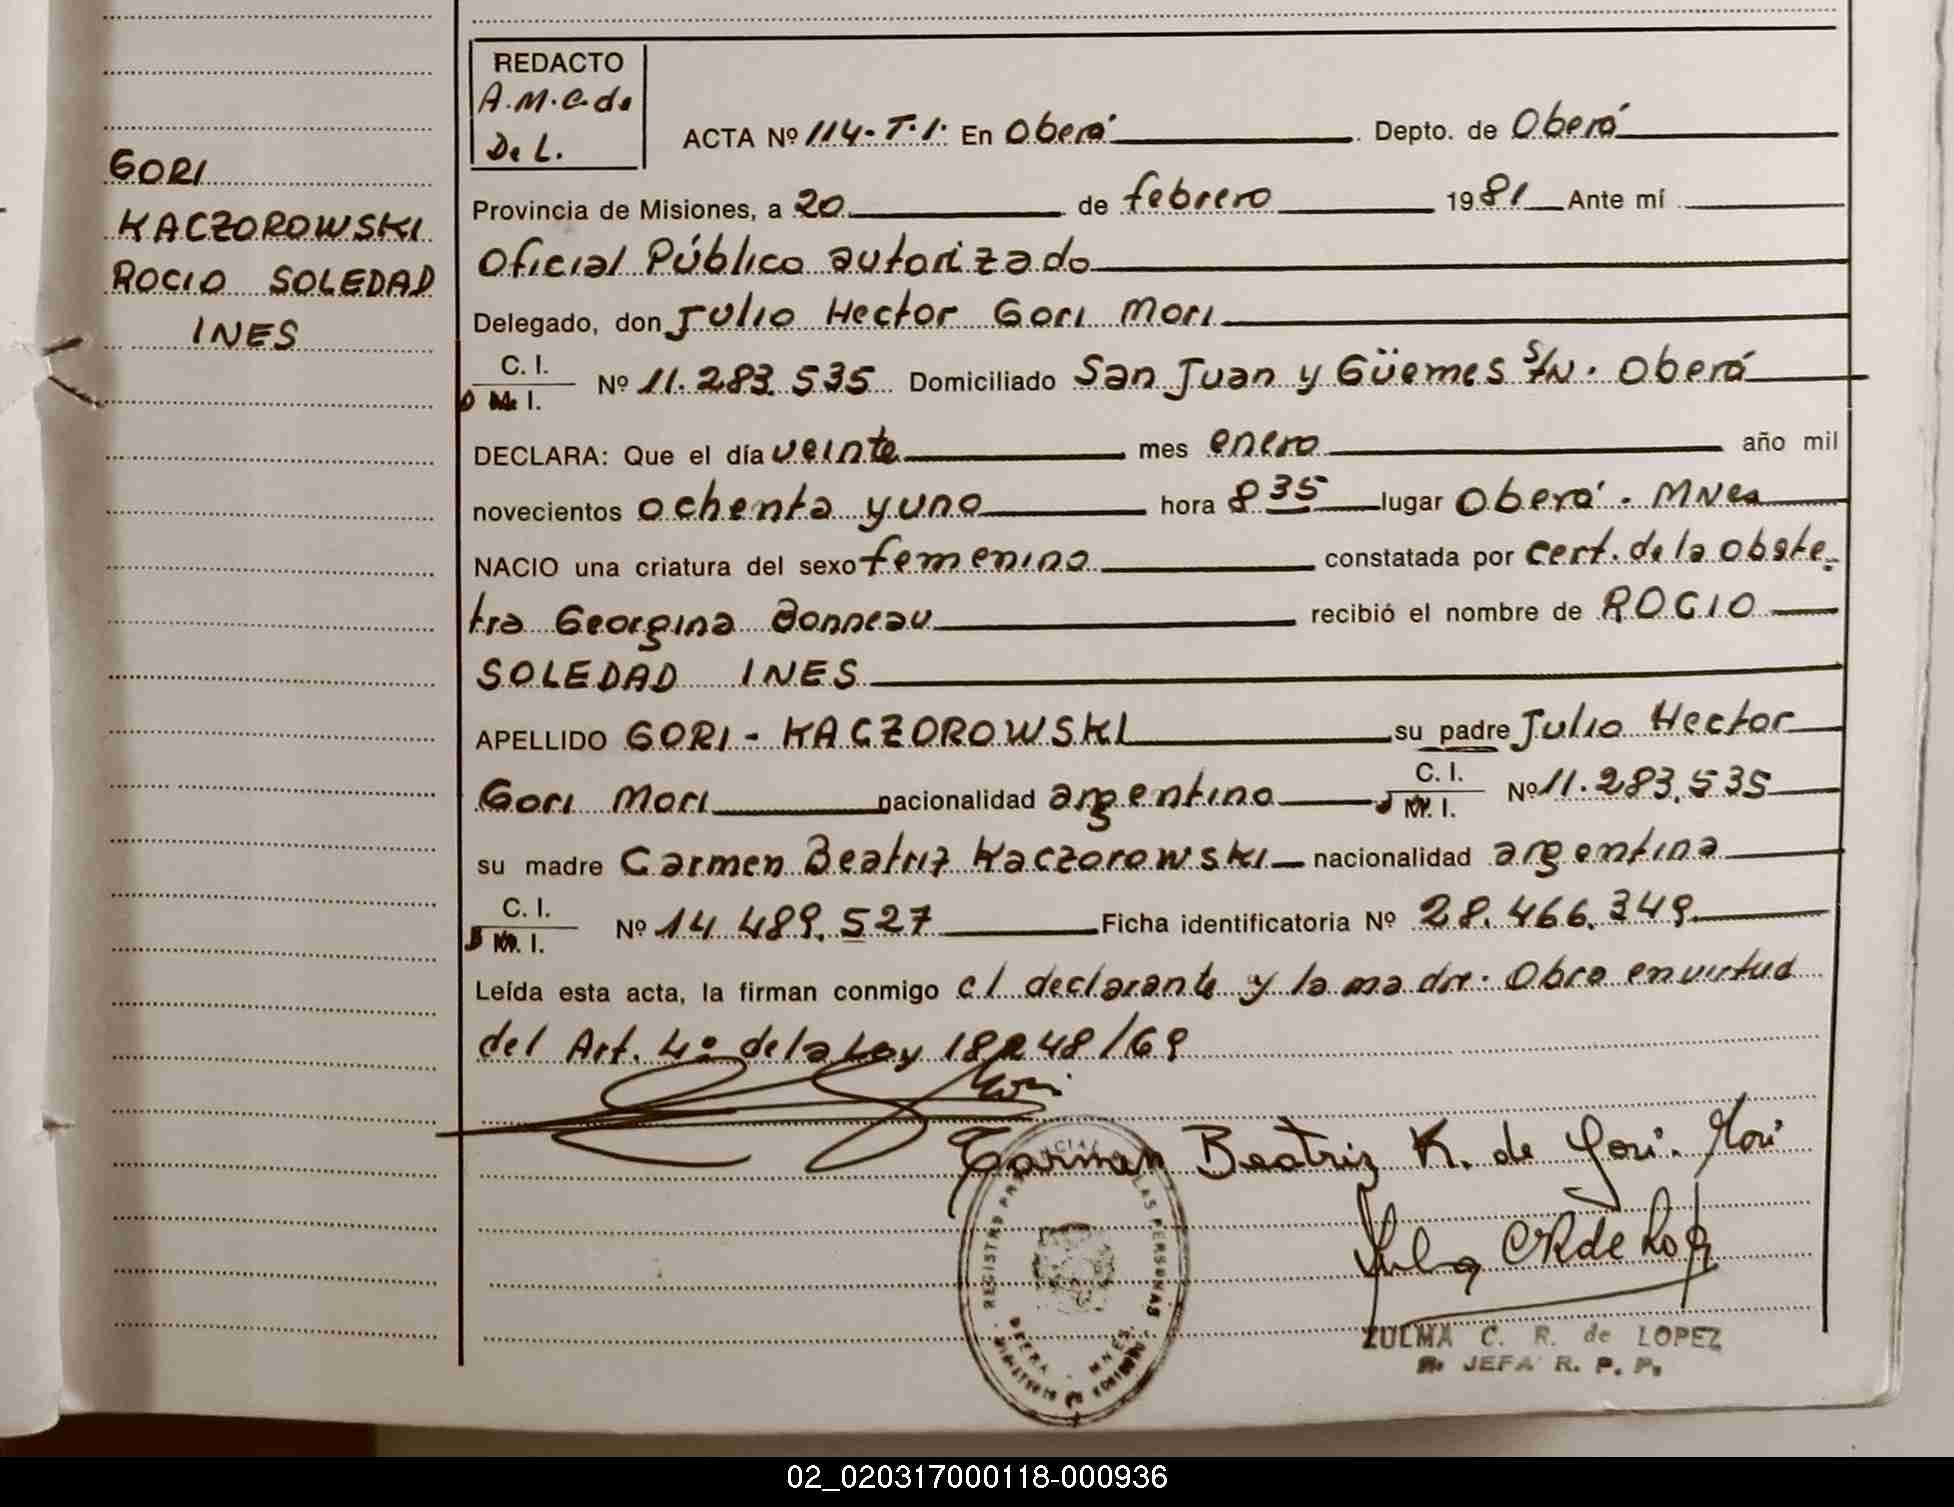 REDACTO
A.M.C. de
De L.
ACTA Nº 114-T.I. En Oberá. Depto. de Oberá
GORI
KACZOROWSKI
ROCIO SOLEDAD
INES
Provincia de Misiones, a 20 de febrero 1981 Ante mí
Oficial Público autorizado
Delegado, don Julio Hector Gori Mori
C. I.
D M. I. Nº 11.283.535 Domiciliado San Juan y Güemes S/N. Oberá
DECLARA: Que el día veinte mes enero año mil
novecientos ochenta y uno hora 8 35 lugar Oberá. MNes
NACIO una criatura del sexo femenino constatada por cert. de la obste-
tra Georgina Bonneau recibió el nombre de ROCIO
SOLEDAD INES
APELLIDO GORI - KACZOROWSKI su padre Julio Hector
Gori Mori nacionalidad argentino C. I. M. I. Nº 11.283.535
su madre Carmen Beatriz Kaczorowski nacionalidad argentina
C. I.
M. I. Nº 14.489.527 Ficha identificatoria Nº 28.466.349
Leída esta acta, la firman conmigo el declarante y la madre. Obro en virtud
del Art. 4º de la Ley 18248/69
Carmen Beatriz K. de Gori. Mori
REGISTRO PROVINCIAL DE LAS PERSONAS
OBERA - MNES.
ZULMA C. R. de LOPEZ
JEFA R. P. P.
02_020317000118-000936